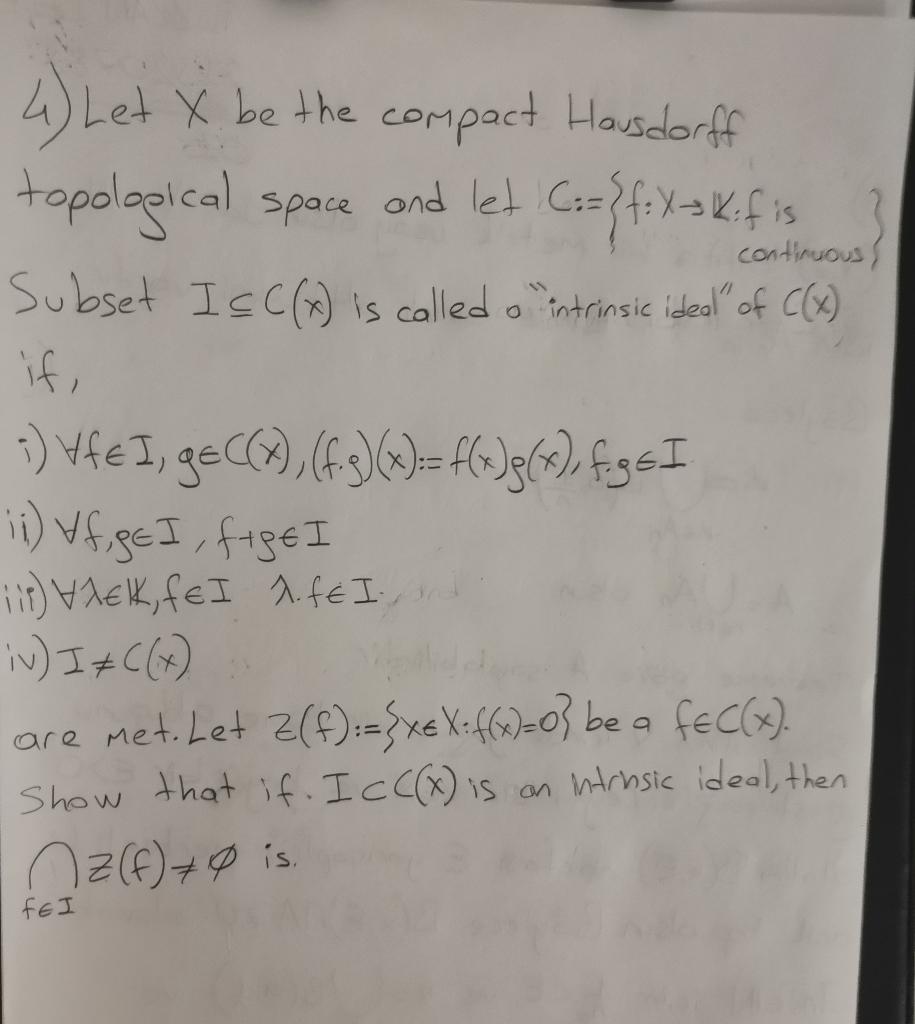 4) Let X be the compact Hausdorff
topological space and let C:={f:X→K:f is
continuous}
Subset I⊆C(x) is called a "intrinsic ideal" of C(x)
if,
i) ∀f∈I, g∈C(x), (f.g)(x):=f(x)g(x), f.g∈I
ii) ∀f,g∈I, f+g∈I
iii) ∀λ∈K, f∈I λ.f∈I.
iv) I≠C(x)
are met. Let Z(f):={x∈X:f(x)=0} be a f∈C(x).
Show that if. I⊂C(x) is an intrinsic ideal, then
⋂Z(f)≠∅ is.
f∈I